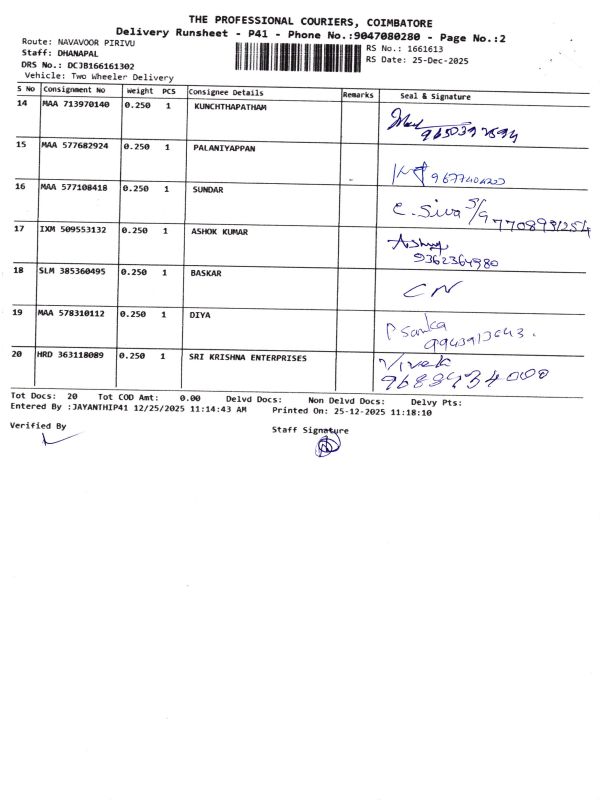 THE PROFESSIONAL COURIERS, COIMBATORE
Delivery Runsheet - P41 - Phone No.:9047080280 - Page No.:2
Route: NAVAVOOR PIRIVU
RS No.: 1661613
Staff: DHANAPAL
RS Date: 25-Dec-2025
DRS No.: DCJB166161302
Vehicle: Two Wheeler Delivery
S No Consignment No Weight PCS Consignee Details Remarks Seal & Signature
14 MAA 713970140 0.250 1 KUNCHTHAPATHAM
15 MAA 577682924 0.250 1 PALANIYAPPAN
16 MAA 577108418 0.250 1 SUNDAR
C. Siva
17 IXM 509553132 0.250 1 ASHOK KUMAR
9362364980
18 SLM 385360495 0.250 1 BASKAR
CN
19 MAA 578310112 0.250 1 DIYA
20 HRD 363118089 0.250 1 SRI KRISHNA ENTERPRISES
Vivek
Tot Docs: 20 Tot COD Amt: 0.00 Delvd Docs: Non Delvd Docs: Delvy Pts:
Entered By :JAYANTHIP41 12/25/2025 11:14:43 AM Printed On: 25-12-2025 11:18:10
Verified By
Staff Signature